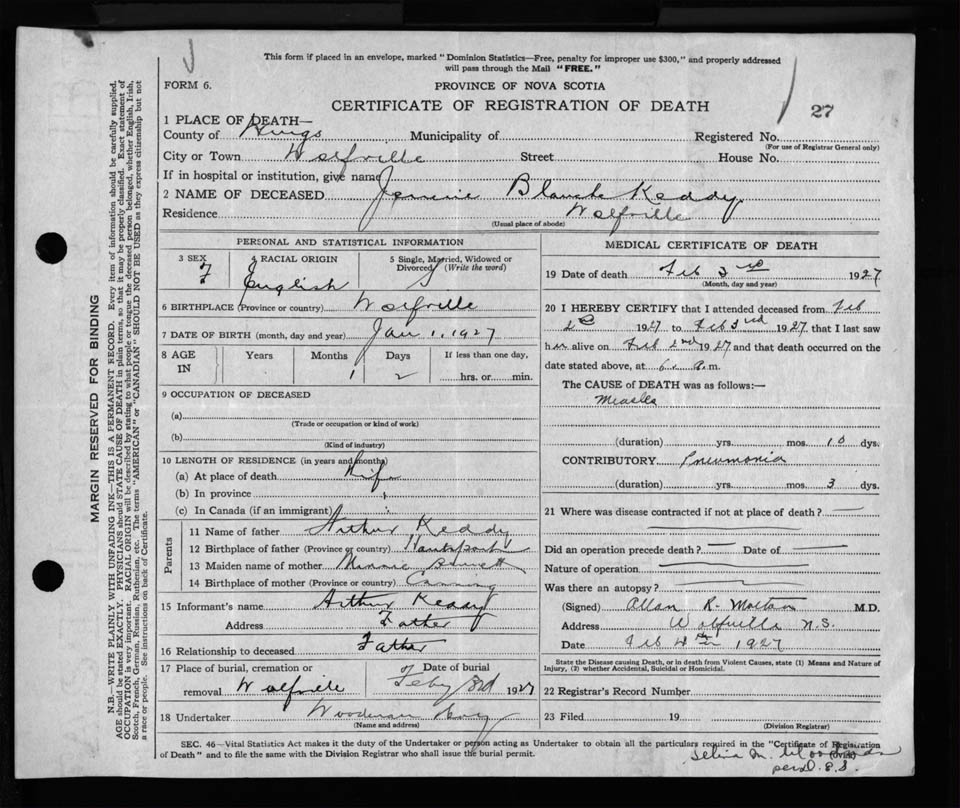 This form if placed in an envelope, marked "Dominion Statistics—Free, penalty for improper use $300," and properly addressed
will pass through the Mail "FREE."
FORM 6.
PROVINCE OF NOVA SCOTIA
CERTIFICATE OF REGISTRATION OF DEATH
27
1 PLACE OF DEATH—
County of Kings Municipality of Registered No.
(For use of Registrar General only)
City or Town Wolfville Street House No.
If in hospital or institution, give name
2 NAME OF DECEASED Jennie Blanch Keddy
Residence Wolfville
(Usual place of abode)
PERSONAL AND STATISTICAL INFORMATION
3 SEX 4 RACIAL ORIGIN 5 Single, Married, Widowed or
Divorced (Write the word)
F English S
6 BIRTHPLACE (Province or country) Wolfville
7 DATE OF BIRTH (month, day and year) Jan 1, 1927
8 AGE Years Months Days If less than one day,
IN 1 2 hrs. or min.
9 OCCUPATION OF DECEASED
(a)
(Trade or occupation or kind of work)
(b)
(Kind of industry)
10 LENGTH OF RESIDENCE (in years and months)
(a) At place of death Life
(b) In province
(c) In Canada (if an immigrant)
Parents
11 Name of father Arthur Keddy
12 Birthplace of father (Province or country) Hantsport
13 Maiden name of mother Minnie
14 Birthplace of mother (Province or country) Canning
15 Informant's name Arthur Keddy
Address Father
16 Relationship to deceased Father
17 Place of burial, cremation or Date of burial
removal Wolfville Feby 3rd 1927
18 Undertaker
(Name and address)
MEDICAL CERTIFICATE OF DEATH
19 Date of death Feb 3rd 1927
(Month, day and year)
20 I HEREBY CERTIFY that I attended deceased from Feb
1927 to Feb 3rd 1927, that I last saw
her alive on Feb 2nd 1927 and that death occurred on the
date stated above, at 6 m.
The CAUSE of DEATH was as follows:—
Measles
(duration) yrs. mos. 10 dys.
CONTRIBUTORY Pneumonia
(duration) yrs. mos. 3 dys.
21 Where was disease contracted if not at place of death?
Did an operation precede death? Date of
Nature of operation
Was there an autopsy?
(Signed) Allan R. Morton M.D.
Address Wolfville N.S.
Date Feb 4th 1927
State the Disease causing Death, or in death from Violent Causes, state (1) Means and Nature of
Injury, (2) whether Accidental, Suicidal or Homicidal.
22 Registrar's Record Number
23 Filed 19
(Division Registrar)
SEC. 46—Vital Statistics Act makes it the duty of the Undertaker or person acting as Undertaker to obtain all the particulars required in the "Certificate of Registration
of Death" and to file the same with the Division Registrar who shall issue the burial permit.
MARGIN RESERVED FOR BINDING
N.B.—WRITE PLAINLY WITH UNFADING INK—THIS IS A PERMANENT RECORD. Every item of information should be carefully supplied.
AGE should be stated EXACTLY. PHYSICIANS should STATE CAUSE OF DEATH in plain terms, so that it may be properly classified. Exact statement of
OCCUPATION is very important. RACIAL ORIGIN will be described by stating to what people or tongue the deceased person belonged, whether English, Irish,
Scotch, French, German, Russian, Ruthenian, etc. The terms "AMERICAN" or "CANADIAN" SHOULD NOT BE USED as they express citizenship but not
a race or people. See instructions on back of Certificate.